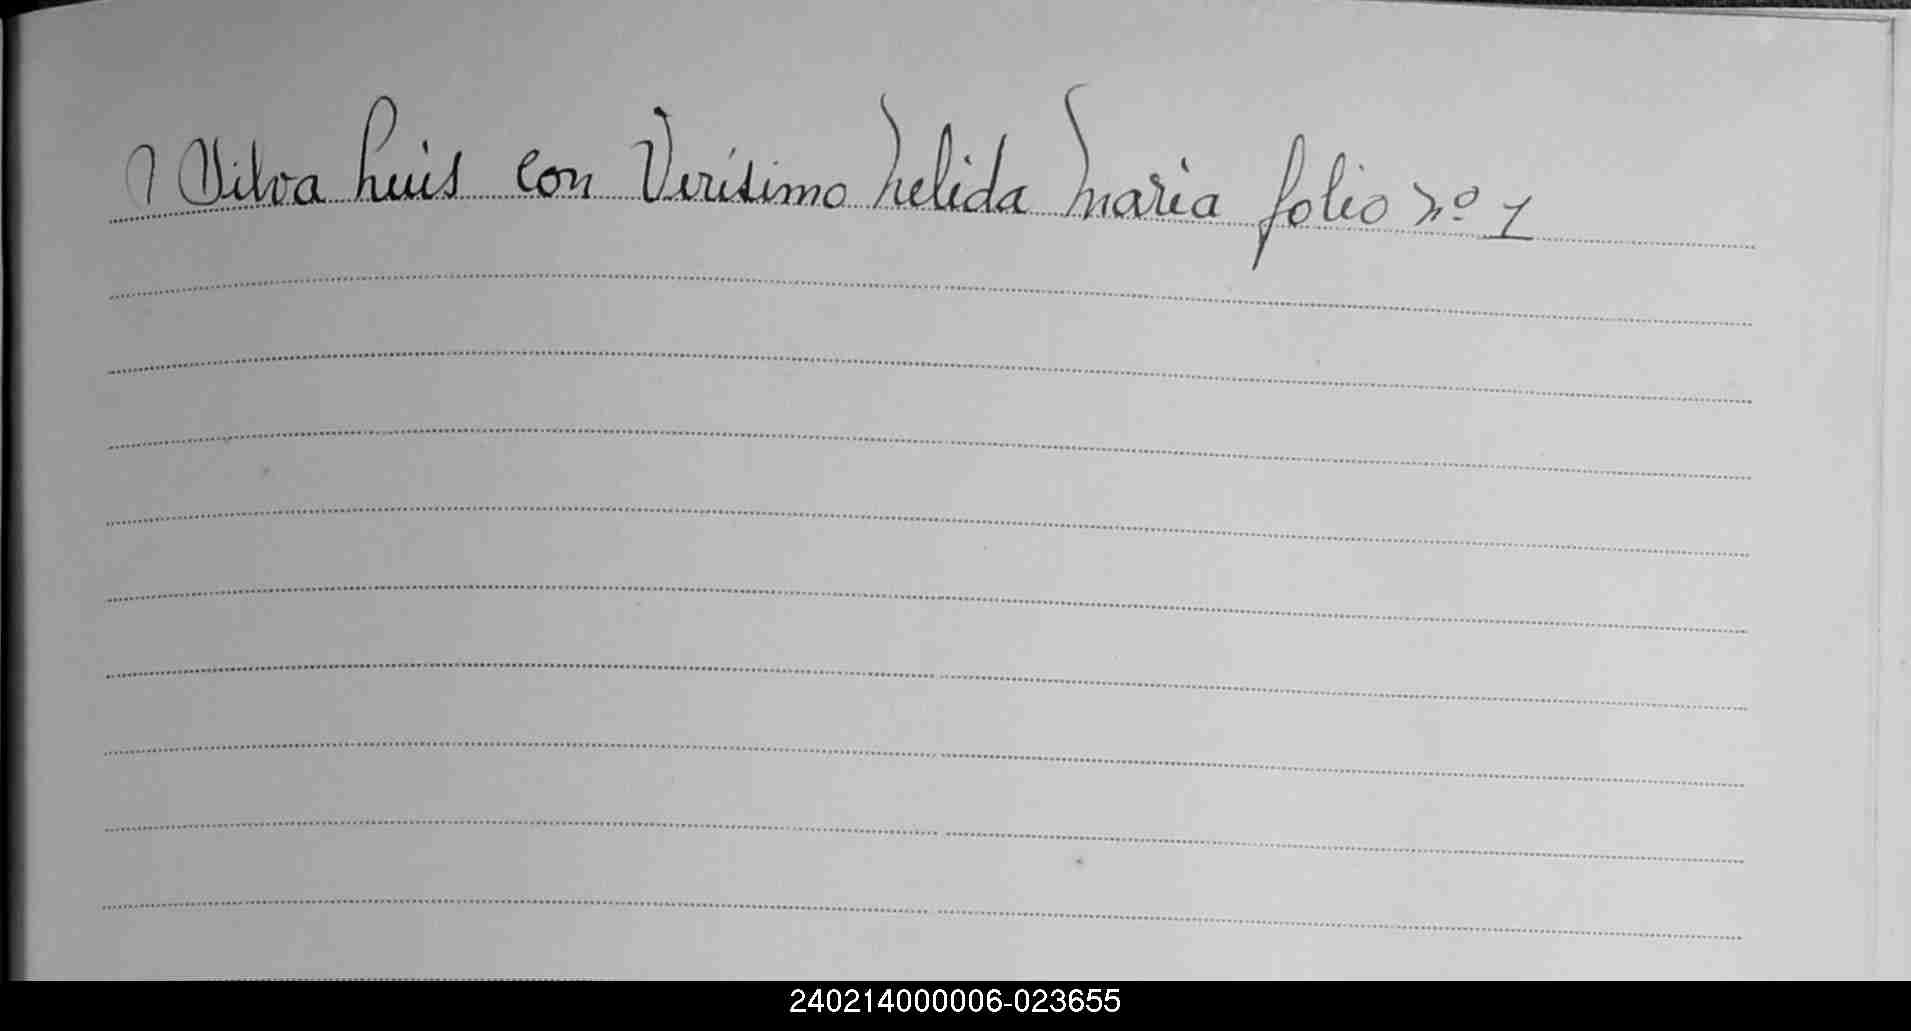 1 Vilva Luis con Verísimo Nelida Maria folio nº 1
240214000006-023655